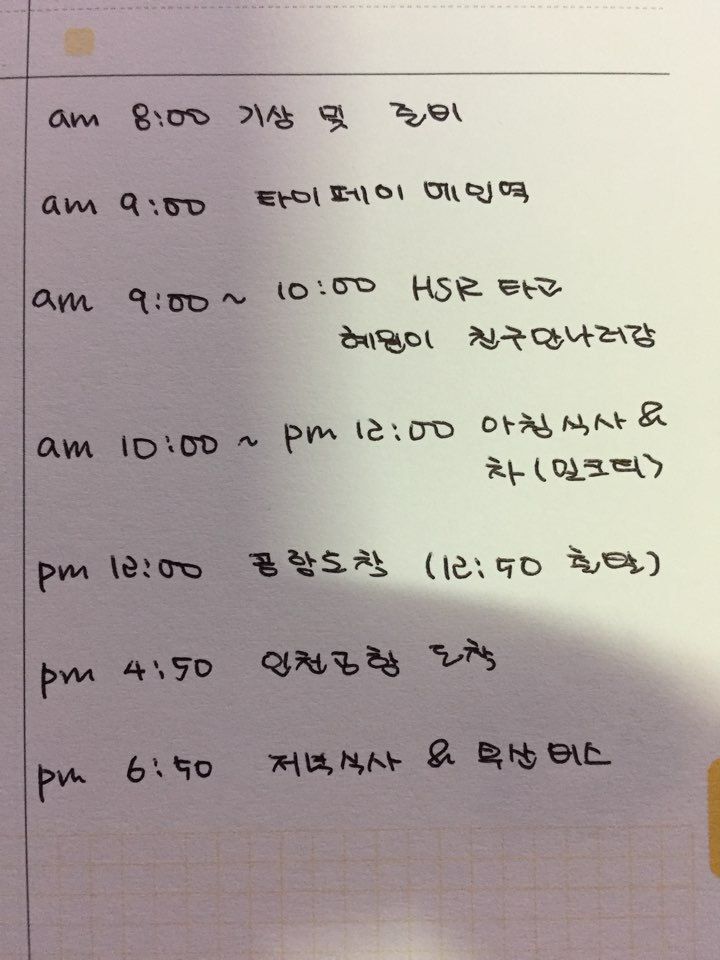 am 8:00 기상 및 준비
am 9:00 타이페이 메인역
am 9:00 ~ 10:00 HSR 타고
혜원이 친구만나러감
am 10:00 ~ pm 12:00 아침식사 &
차 (밀크티)
pm 12:00 공항도착 (12:50 출발)
pm 4:50 인천공항 도착
pm 6:50 저녁식사 & 부산버스